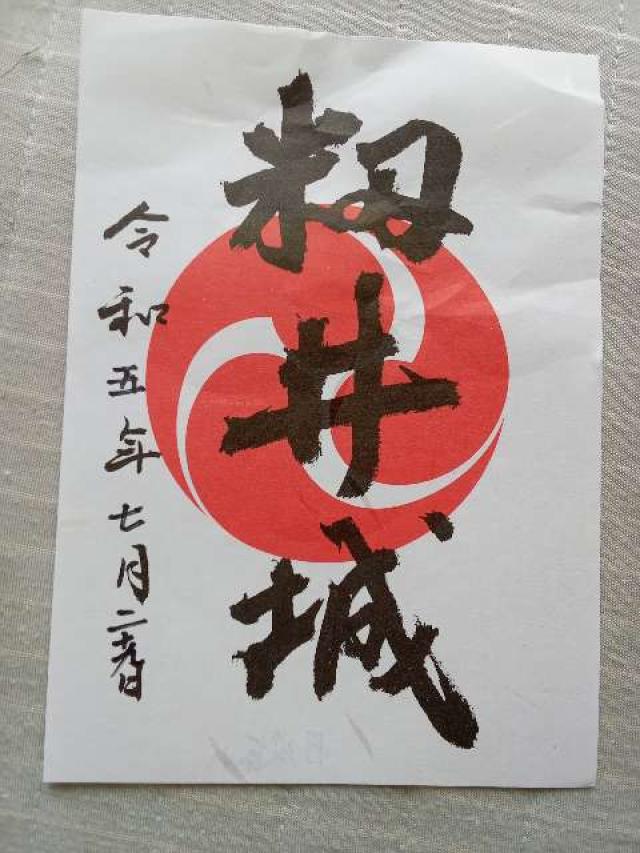 籾井城
令和五年七月二十九日